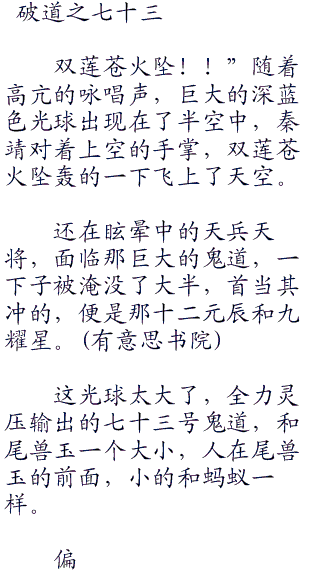 破道之七十三
双莲苍火坠！！”随着
高亢的咏唱声，巨大的深蓝
色光球出现在了半空中，秦
靖对着上空的手掌，双莲苍
火坠轰的一下飞上了天空。
还在眩晕中的天兵天
将，面临那巨大的鬼道，一
下子被淹没了大半，首当其
冲的，便是那十二元辰和九
耀星。(有意思书院)
这光球太大了，全力灵
压输出的七十三号鬼道，和
尾兽玉一个大小，人在尾兽
玉的前面，小的和蚂蚁一
样。
偏